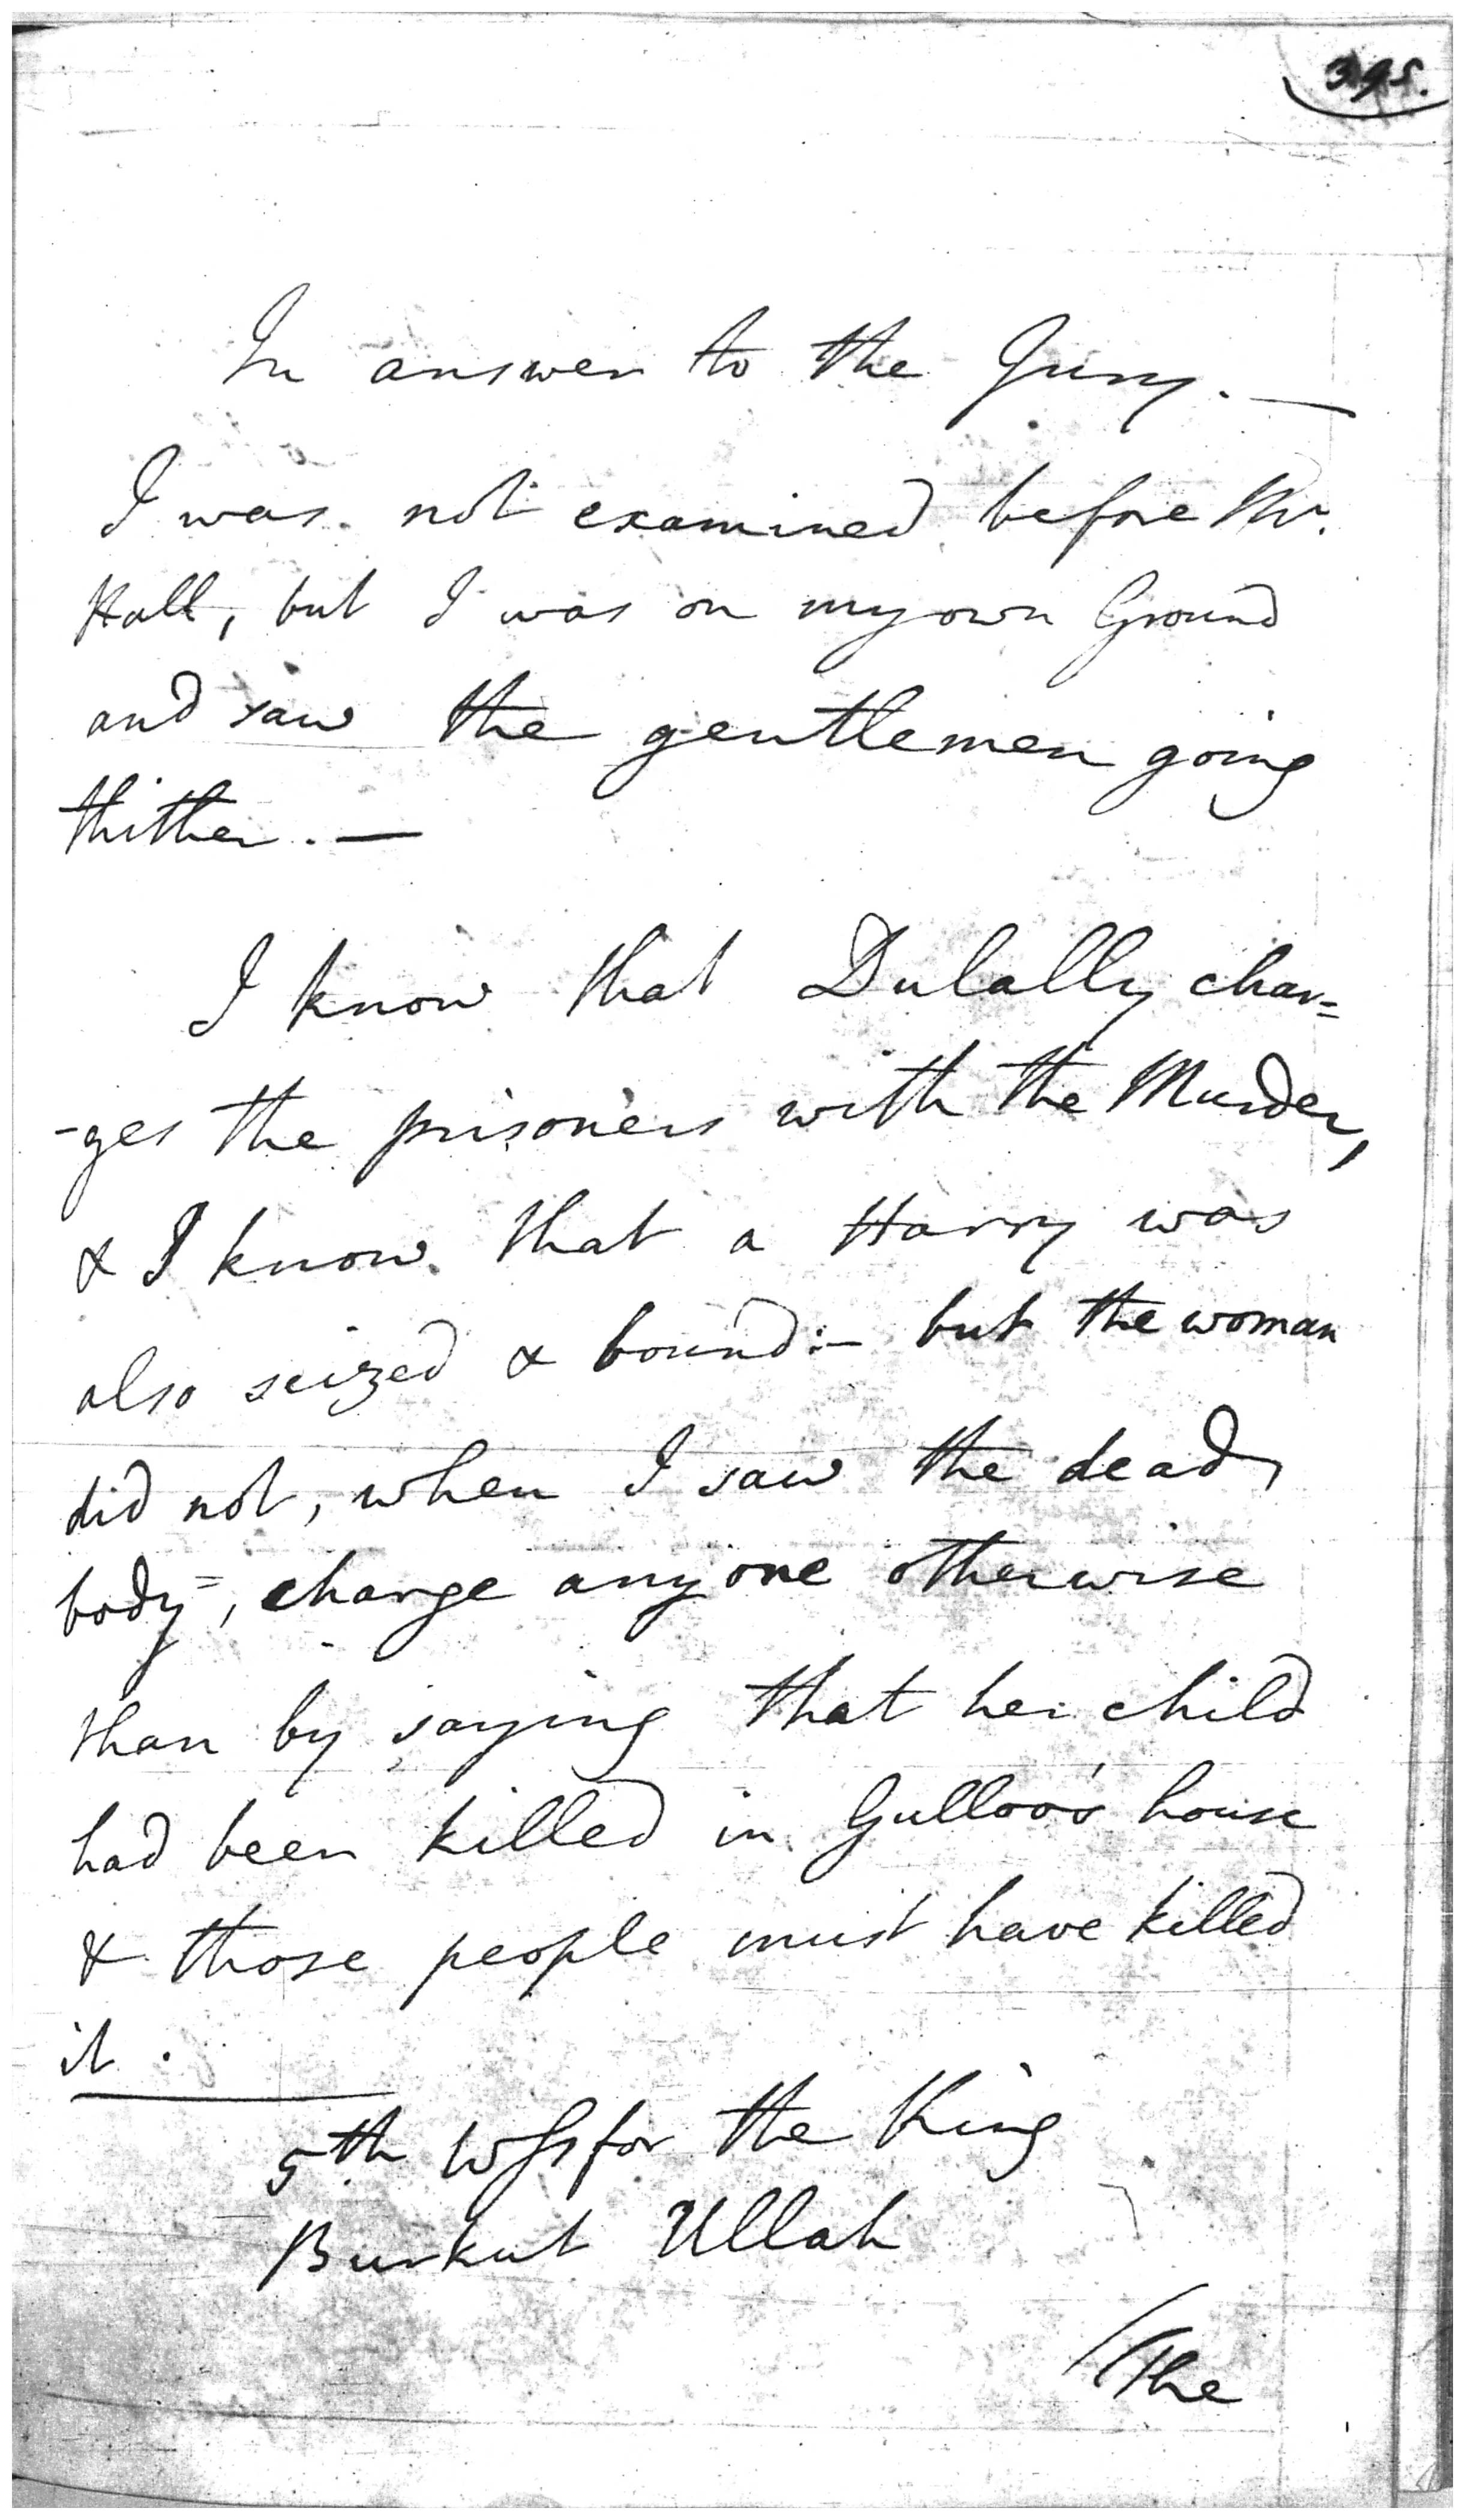 395.
In answer to the Jury. —
I was not examined before Mr.
Hall, but I was on my own Ground
and saw the gentlemen going
thither. —
I know that Dulally char=
-ges the prisoners with the Murder,
& I know that a Harry was
also seized & bound:- but the woman
did not, when I saw the dead
body=, charge any one otherwise
than by saying that her child
had been killed in Gulloo's house
& those people must have killed
it.
5th Wss for the King
Burkut Ullah
/The